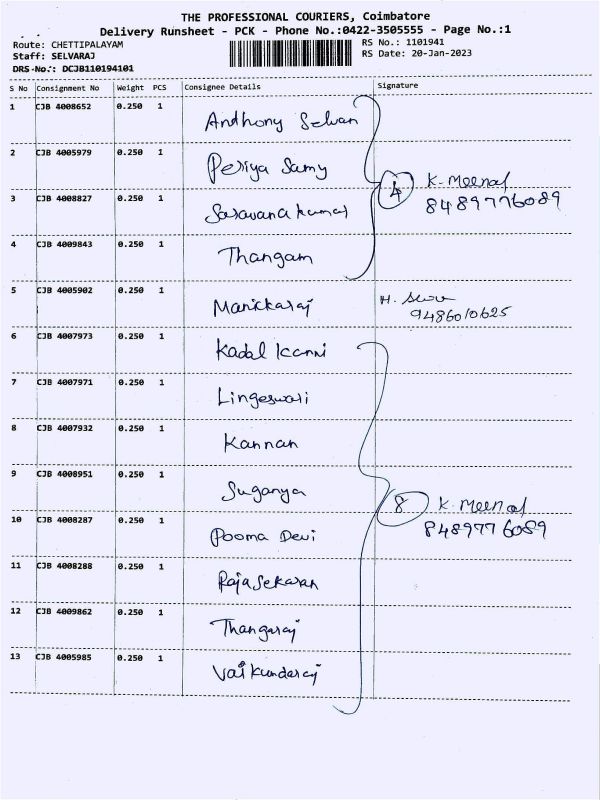 THE PROFESSIONAL COURIERS, Coimbatore
Delivery Runsheet - PCK - Phone No.:0422-3505555 - Page No.:1
Route: CHETTIPALAYAM
RS No.: 1101941
Staff: SELVARAJ
RS Date: 20-Jan-2023
DRS-No.: DCJB110194101
S No Consignment No Weight PCS Consignee Details Signature
1 CJB 4008652 0.250 1 Anthony Selvan
2 CJB 4005979 0.250 1 Periya Samy
3 CJB 4008827 0.250 1 Saravana kumar
4 K. Meenal
8489776089
4 CJB 4009843 0.250 1 Thangam
5 CJB 4005902 0.250 1 Manickaraj H.
9486010625
6 CJB 4007973 0.250 1 Kadal kanni
7 CJB 4007971 0.250 1 Lingeswari
8 CJB 4007932 0.250 1 Kannan
9 CJB 4008951 0.250 1 Suganya
8 K. Meenal
8489776089
10 CJB 4008287 0.250 1 Pooma Devi
11 CJB 4008288 0.250 1 Rajasekaran
12 CJB 4009862 0.250 1 Thangaraj
13 CJB 4005985 0.250 1 Vaikundaraj